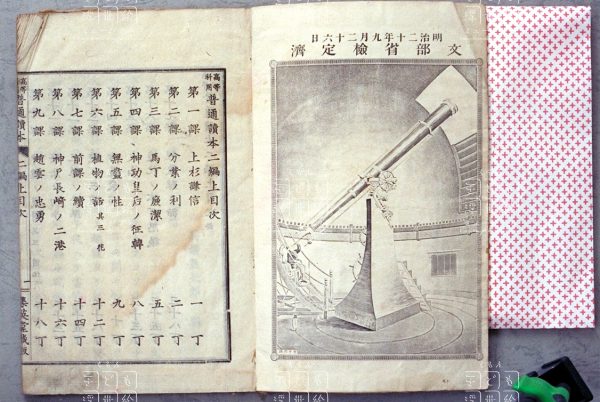 明治二十年九月二十六日
文部省檢定濟
高等科用 普通讀本二編上目次
第一課 上杉謙信 一丁
第二課 分業ノ利 二丁
第三課 馬丁ノ廉潔 五丁
第四課 神功皇后ノ征韓 八丁
第五課 ノ性 九丁
第六課 植物ノ話 其三 花 十二丁
第七課 前課ノ續 十四丁
第八課 神戸長崎ノ二港 十六丁
第九課 趙雲ノ忠勇 十八丁
高等科用 普通讀本 二編上目次 一 集英堂藏版